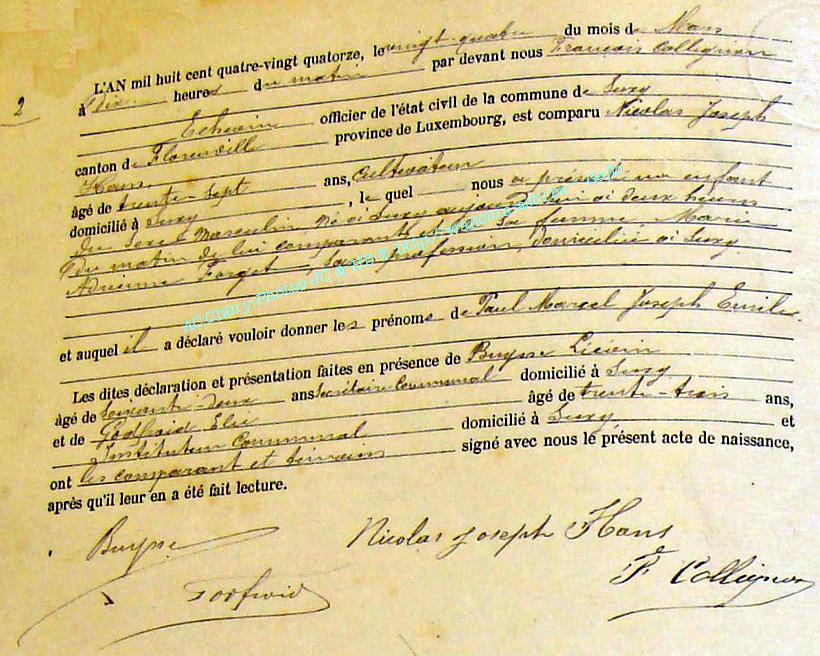 L'AN mil huit cent quatre-vingt quatorze, le vingt-quatre du mois de Mars
à Dix heures du matin par devant nous François Collignon
2
Echevin officier de l'état civil de la commune de Suxy
canton de Florenville province de Luxembourg, est comparu Nicolas Joseph
Hans,
âgé de trente-sept ans, Cultivateur
domicilié à Suxy, le quel nous a présenté un enfant
du sexe masculin, né à Suxy aujourd'hui à deux heures
du matin de lui comparant et de sa femme Marie
Adrienne Forget, sans profession, domiciliée à Suxy.
et auquel il a déclaré vouloir donner les prénoms de Paul Marcel Joseph Emile.
Les dites déclaration et présentation faites en présence de Buysse
âgé de Soixante-deux ans Secrétaire Communal domicilié à Suxy
et de Godfroid Elie âgé de trente-trois ans,
Instituteur Communal domicilié à Suxy et
ont les comparant et témoins signé avec nous le présent acte de naissance,
après qu'il leur en a été fait lecture.
Buysse Nicolas Joseph Hans
Godfroid F Collignon